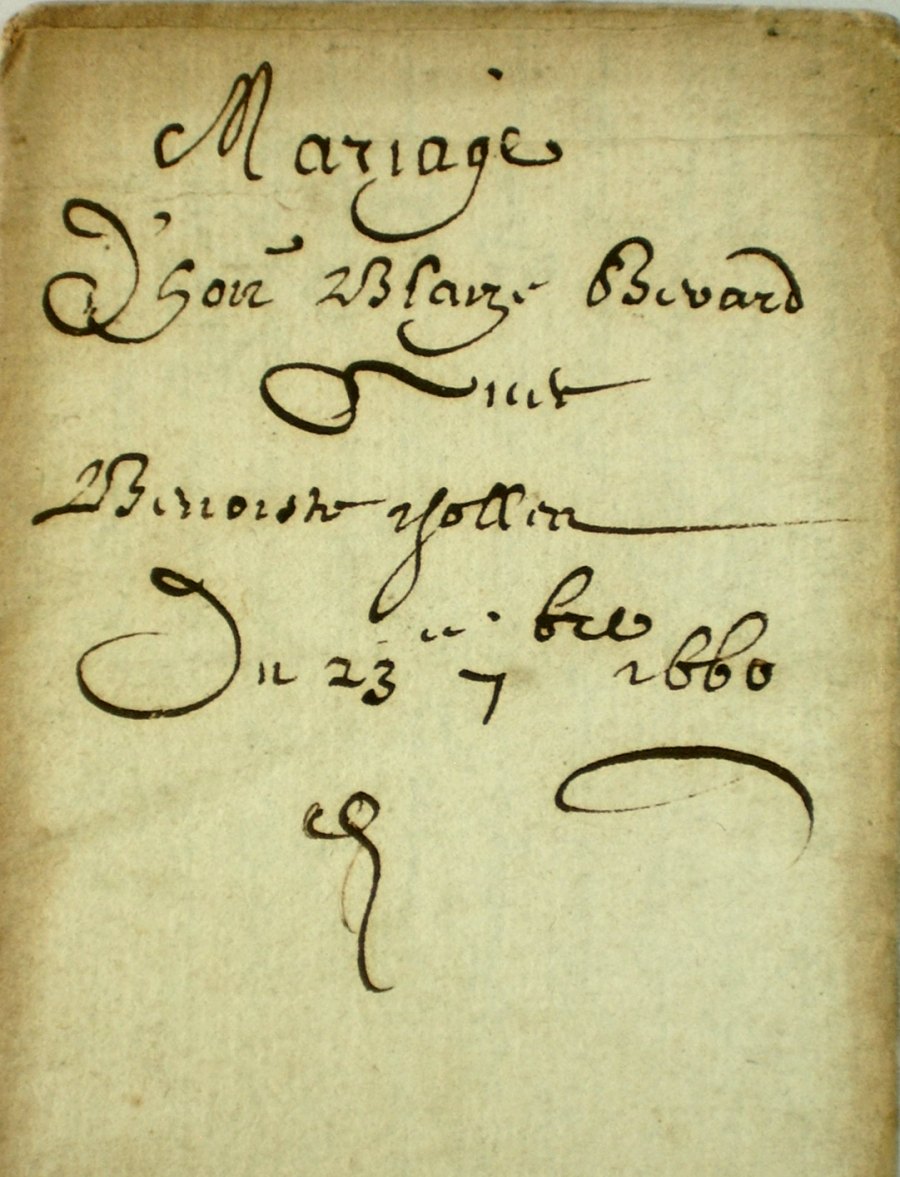 Mariage
D'hon Blaize Bevard
Avec
Benoiste
Du 23 7bre 1660